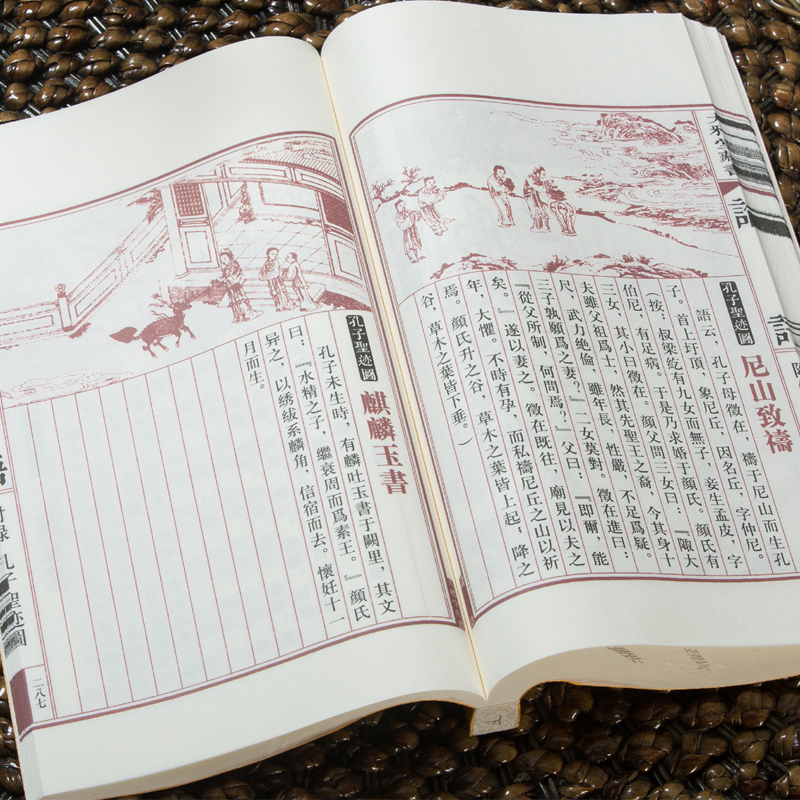 孔子聖迹圖 尼山致禱
語云，孔子母徵在，禱于尼山而生孔
子。首上圩頂，象尼丘，因名丘，字仲尼。
（按：叔梁紇有九女而無子，妾生孟皮，字
伯尼，有足病，于是乃求婚于顏氏。顏氏有
三女，其小曰徵在。顏父問三女曰：『陬大
夫雖父祖爲士，然其先聖王之裔，今其身十
尺，武力絶倫，雖年長，性嚴，不足爲疑。
三子孰願爲之妻？』二女莫對。徵在進曰：
『從父所制，何問焉？』父曰：『即爾，能
矣。』遂以妻之。徵在既往，廟見以夫之
年，大懼。不時有孕，而私禱尼丘之山以祈
焉。顏氏升之谷，草木之葉皆上起，降之
谷，草木之葉皆下垂。）
孔子聖迹圖 麒麟玉書
孔子未生時，有麟吐玉書于闕里，其文
曰：『水精之子，繼衰周而爲素王。』顏氏
异之，以綉紱系麟角，信宿而去。懷妊十一
月而生。
附錄 孔子聖迹圖
二八七
下